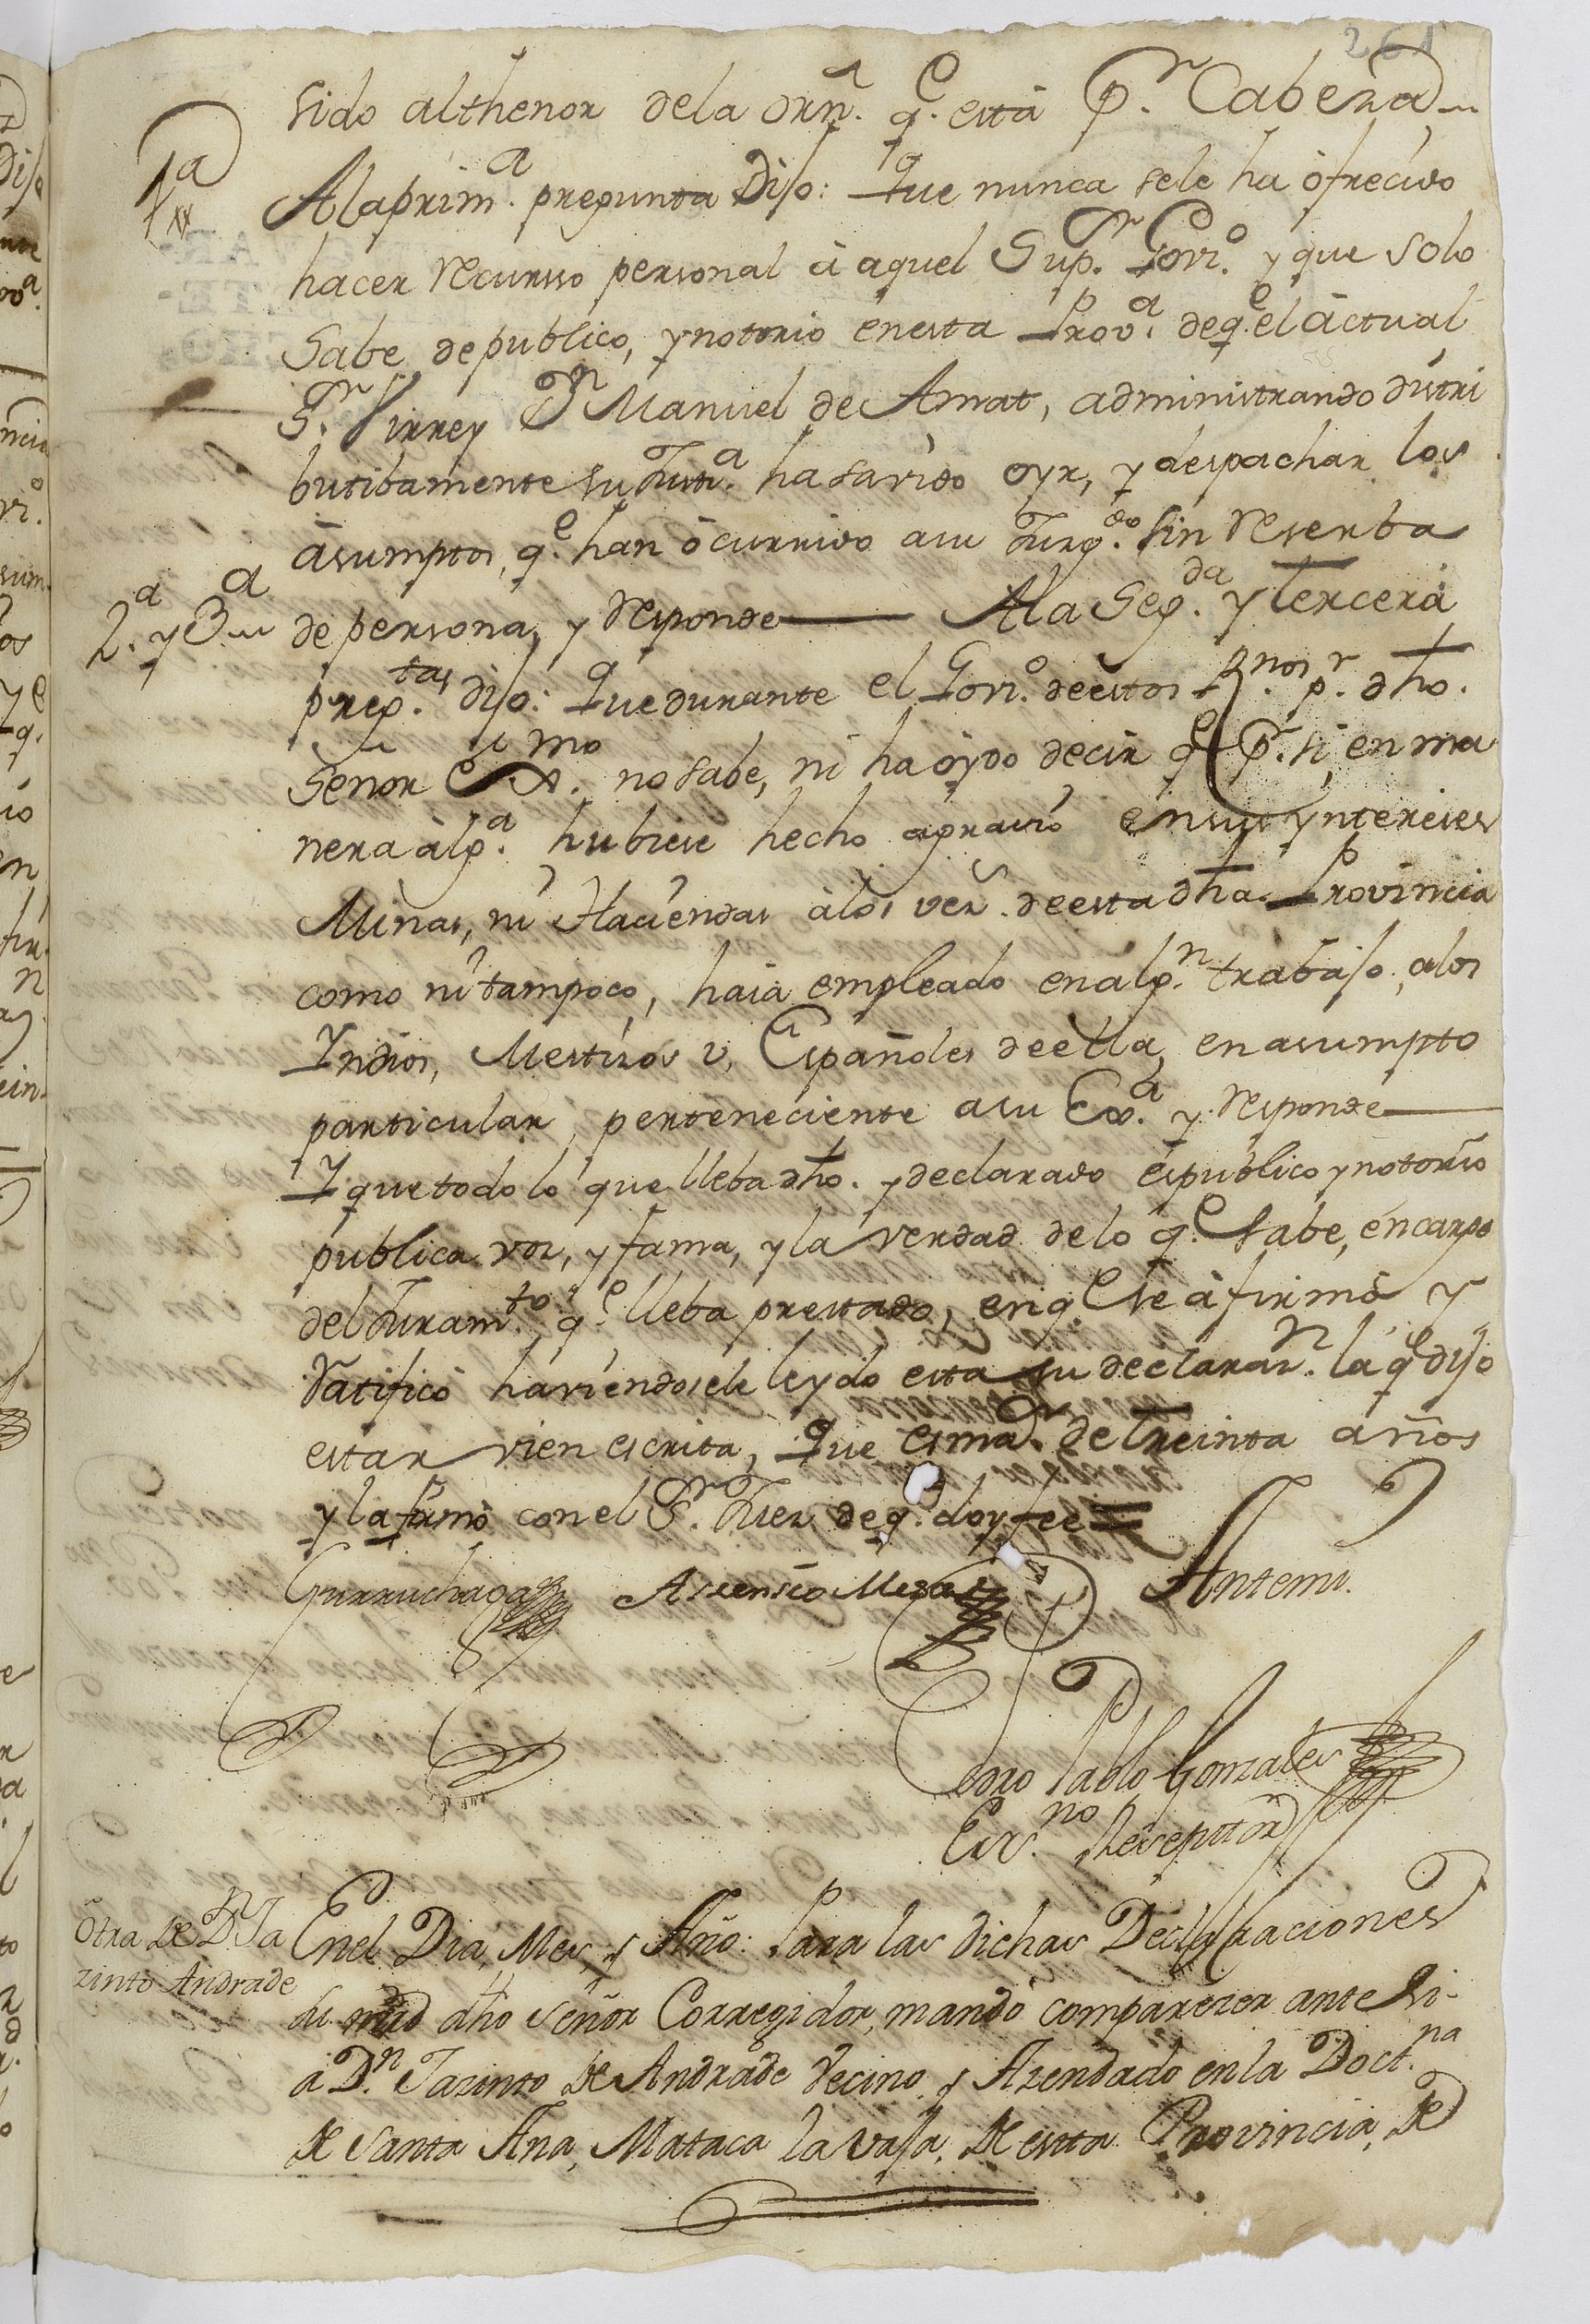 261
sido althenor dela orn.ⁿ q.ᵉ està p.ʳ Cabeza
1.ª
Alaprim.ᵃ pregunta Dijo: Que nunca sele ha ofrecido
hacer recurso personal à aquel Sup.ʳ Govi.º y que solo
Sabe de publico, y notorio en esta Prov.ᵃ de q.ᵉ el àctual
S.ʳ Virrey Dⁿ Manuel de Amat, administrando distri
butibamente su Justi.ᵃ ha savido oyr, y despachar los
àsumptos, q.ᵉ han òcurrido a su Juzg.ᵈᵒ sin reserba
de persona, y responde — Ala Seg.ᵈᵃ y tercera
2.ª y 3.ª
preg.ᵗᵃˢ dijo: Que durante el Govi.º de estos R.ⁿᵒˢ p.ʳ dho.
Señor Ex.ᵐᵒ no sabe, ni ha oydo decir q.ᵉ p.ʳ si, en ma
nera àlg.ᵃ hubiese hecho agravio en sus yntereses
Minas, ni Haciendas à los vez.ˢ de esta dha. Provincia
como ni tampoco, haia empleado en alg.ⁿ trabajo, a los
Yndios, Mestizos u, Españoles de ella, en asumpto
particular, perteneciente a su Ex.ᵃ y responde
Y que todo lo que lleba dho. y declarado es publico y notorio
publica voz, y fama, y la verdad de lo q.ᵉ sabe, en cargo
del Juram.ᵗᵒ q.ᵉ lleba prestado, en q.ᵉ se àfirmò y
ratificò haviendosele leydo esta su declaraz.ⁿ la q.ᵉ dijo
estar vien escrita, Que es ma.ʳ de treinta años
y la firmò con el S.ʳ Juez de q.ᵉ doy fee =
Gurruchaga Ascensio Meza Antemi.
Pedro Pablo Gonzales
Esc.ⁿᵒ Reseptor
Otra de Dⁿ Ja
zinto Andrade
Enel Dia, Mes, y Año: Para las dichas Declaraciones
su mrd dho señor Corregidor, mandò comparezer ante si-
à D.ⁿ Jazinto de Andrade Vecino y Azendado en la Doct.ⁿᵃ
de Santa Ana, Mataca la vaja, de esta Provincia, de